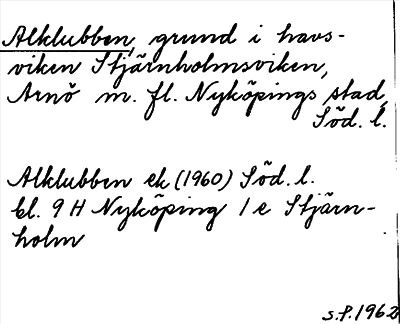 Alklubben, grund i havs-
viken Stjärnholmsviken,
Arnö m. fl. Nyköpings stad,
Söd. l.
Alklubben ek (1960) Söd. l.
bl. 9 H Nyköping 1 e Stjärn-
holm
S.P. 1962